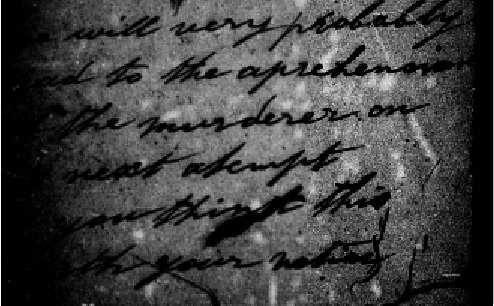 will very probably
to the aprehension
the murderer on
next atempt
you think this
your notice